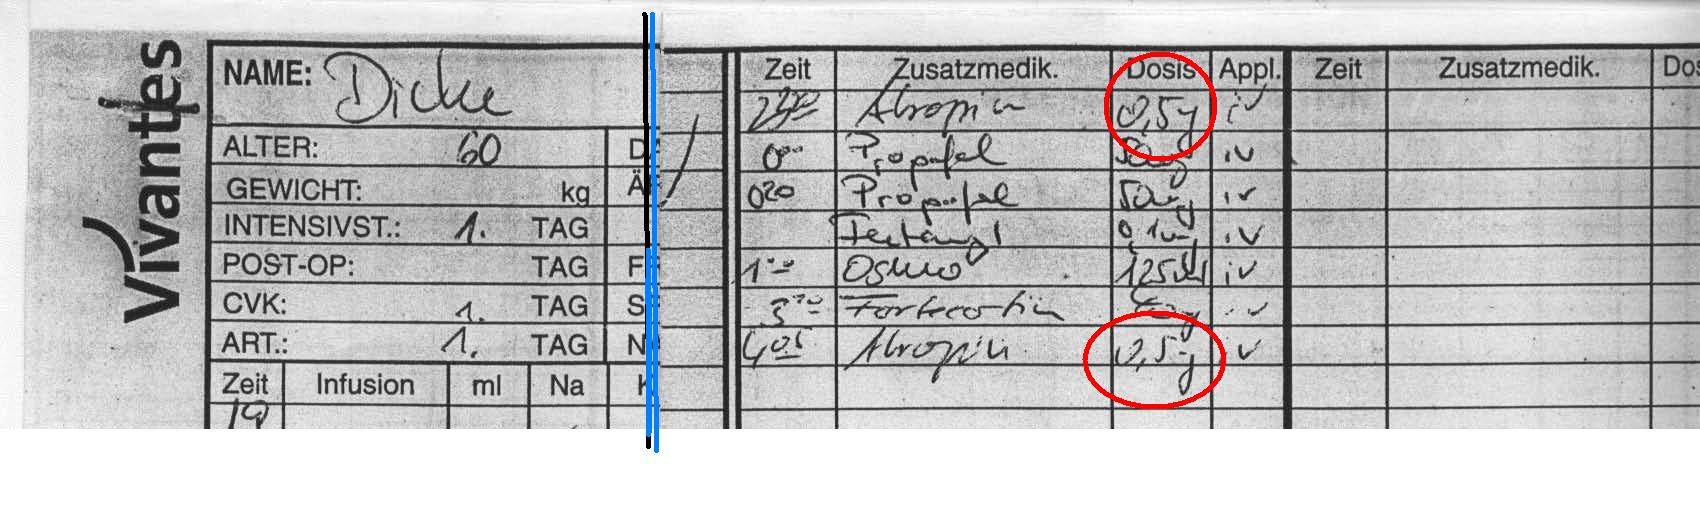 Vivantes
NAME: Dicke
ALTER: 60
GEWICHT: kg
INTENSIVST.: 1. TAG
POST-OP: TAG
CVK: 1. TAG
ART.: 1. TAG
Zeit Infusion ml Na
19
Zeit Zusatzmedik. Dosis Appl. Zeit Zusatzmedik. Dos
Atropin 0,5g iv
0⁰⁰ Propofol iv
0²⁰ Propofol 50mg iv
0,1mg iv
1⁰⁰ Osmo 125ml iv
Fortecortin
4⁰⁵ Atropin 0,5g iv